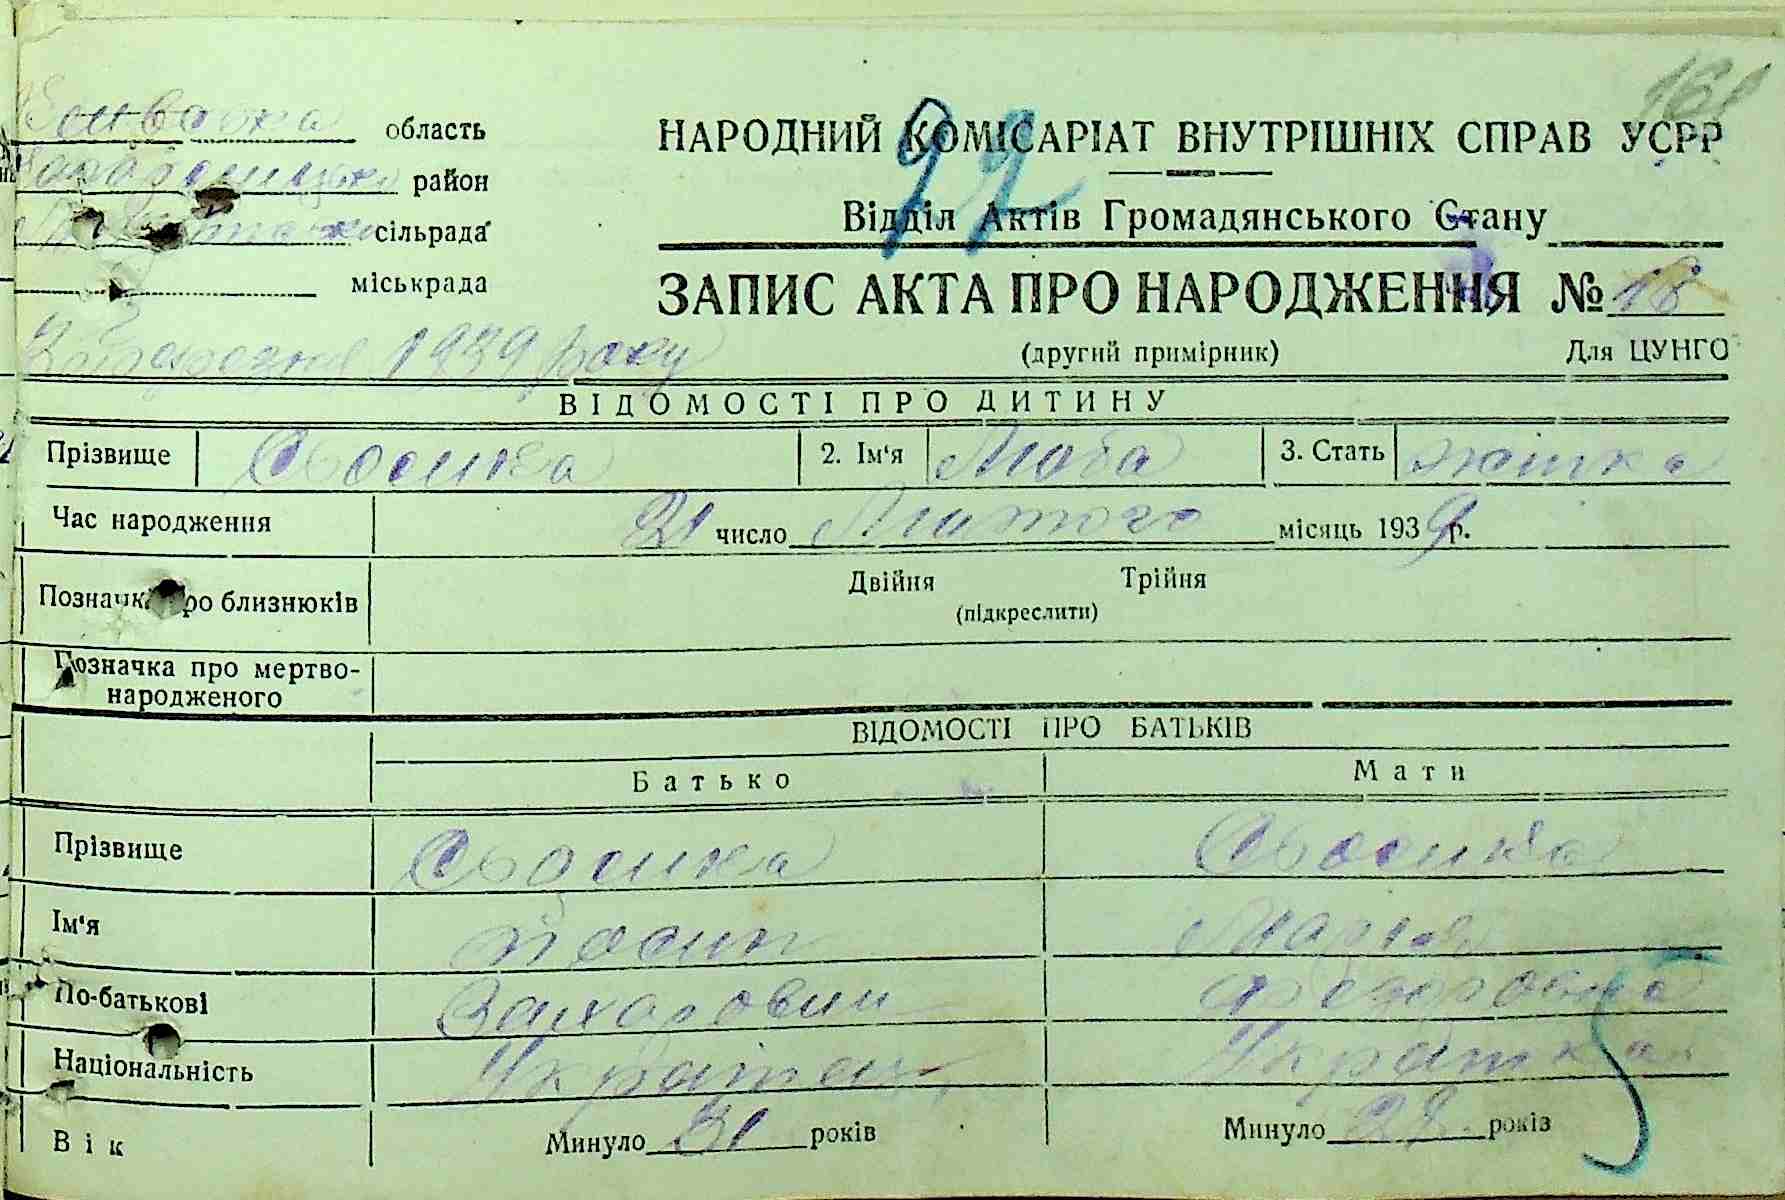 168
Київська область
район
сільрада
міськрада
НАРОДНИЙ КОМІСАРІАТ ВНУТРІШНІХ СПРАВ УСРР
97
Відділ Актів Громадянського Стану
ЗАПИС АКТА ПРО НАРОДЖЕННЯ № 18
(другий примірник) Для ЦУНГО
березня 1939 року
ВІДОМОСТІ ПРО ДИТИНУ
Прізвище 2. Ім‘я Люба 3. Стать жінка
Час народження 21 число Лютого місяць 1939 р.
Позначка про близнюків Двійня Трійня
(підкреслити)
Позначка про мертво-
народженого
ВІДОМОСТІ ПРО БАТЬКІВ
Батько Мати
Прізвище
Ім‘я Йосип Марія
По-батькові Захарович Федоровна
Національність Українец Українка
Вік Минуло 31 років Минуло 28 років